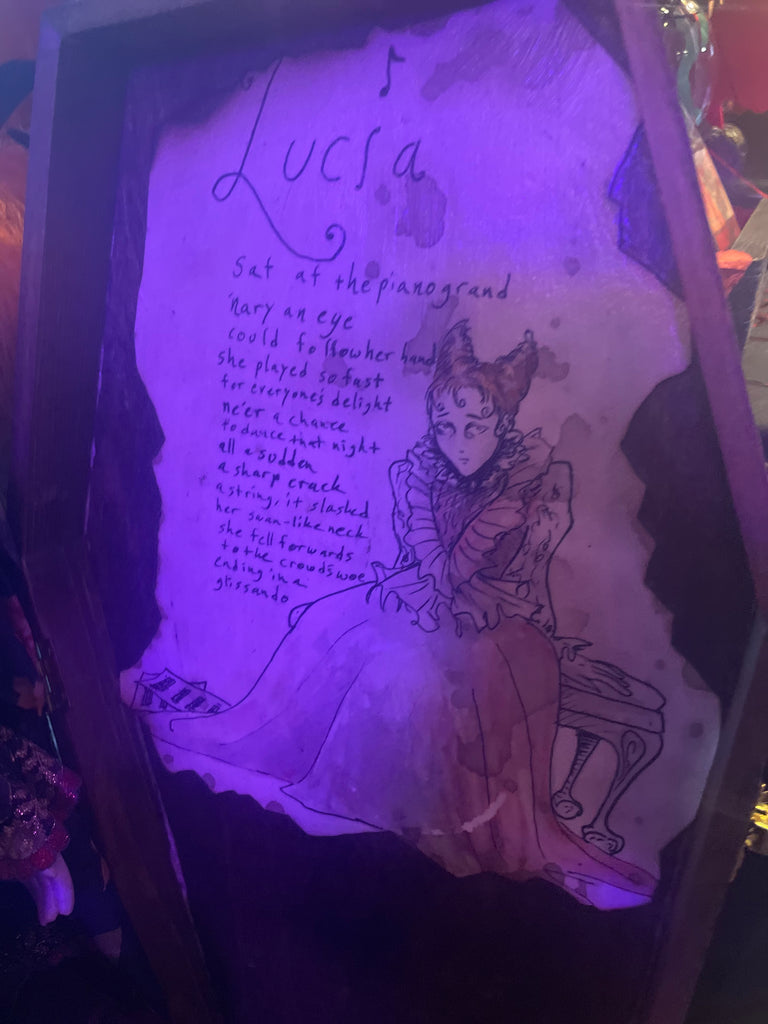 Lucia
Sat at the piano grand
'nary an eye
could follow her hand
she played so fast
for everyone's delight
ne'er a chance
to dance that night
all a sudden
a sharp crack
a string, it slashed
her swan-like neck
she fell forwards
to the crowd's woe
ending in a
glissando